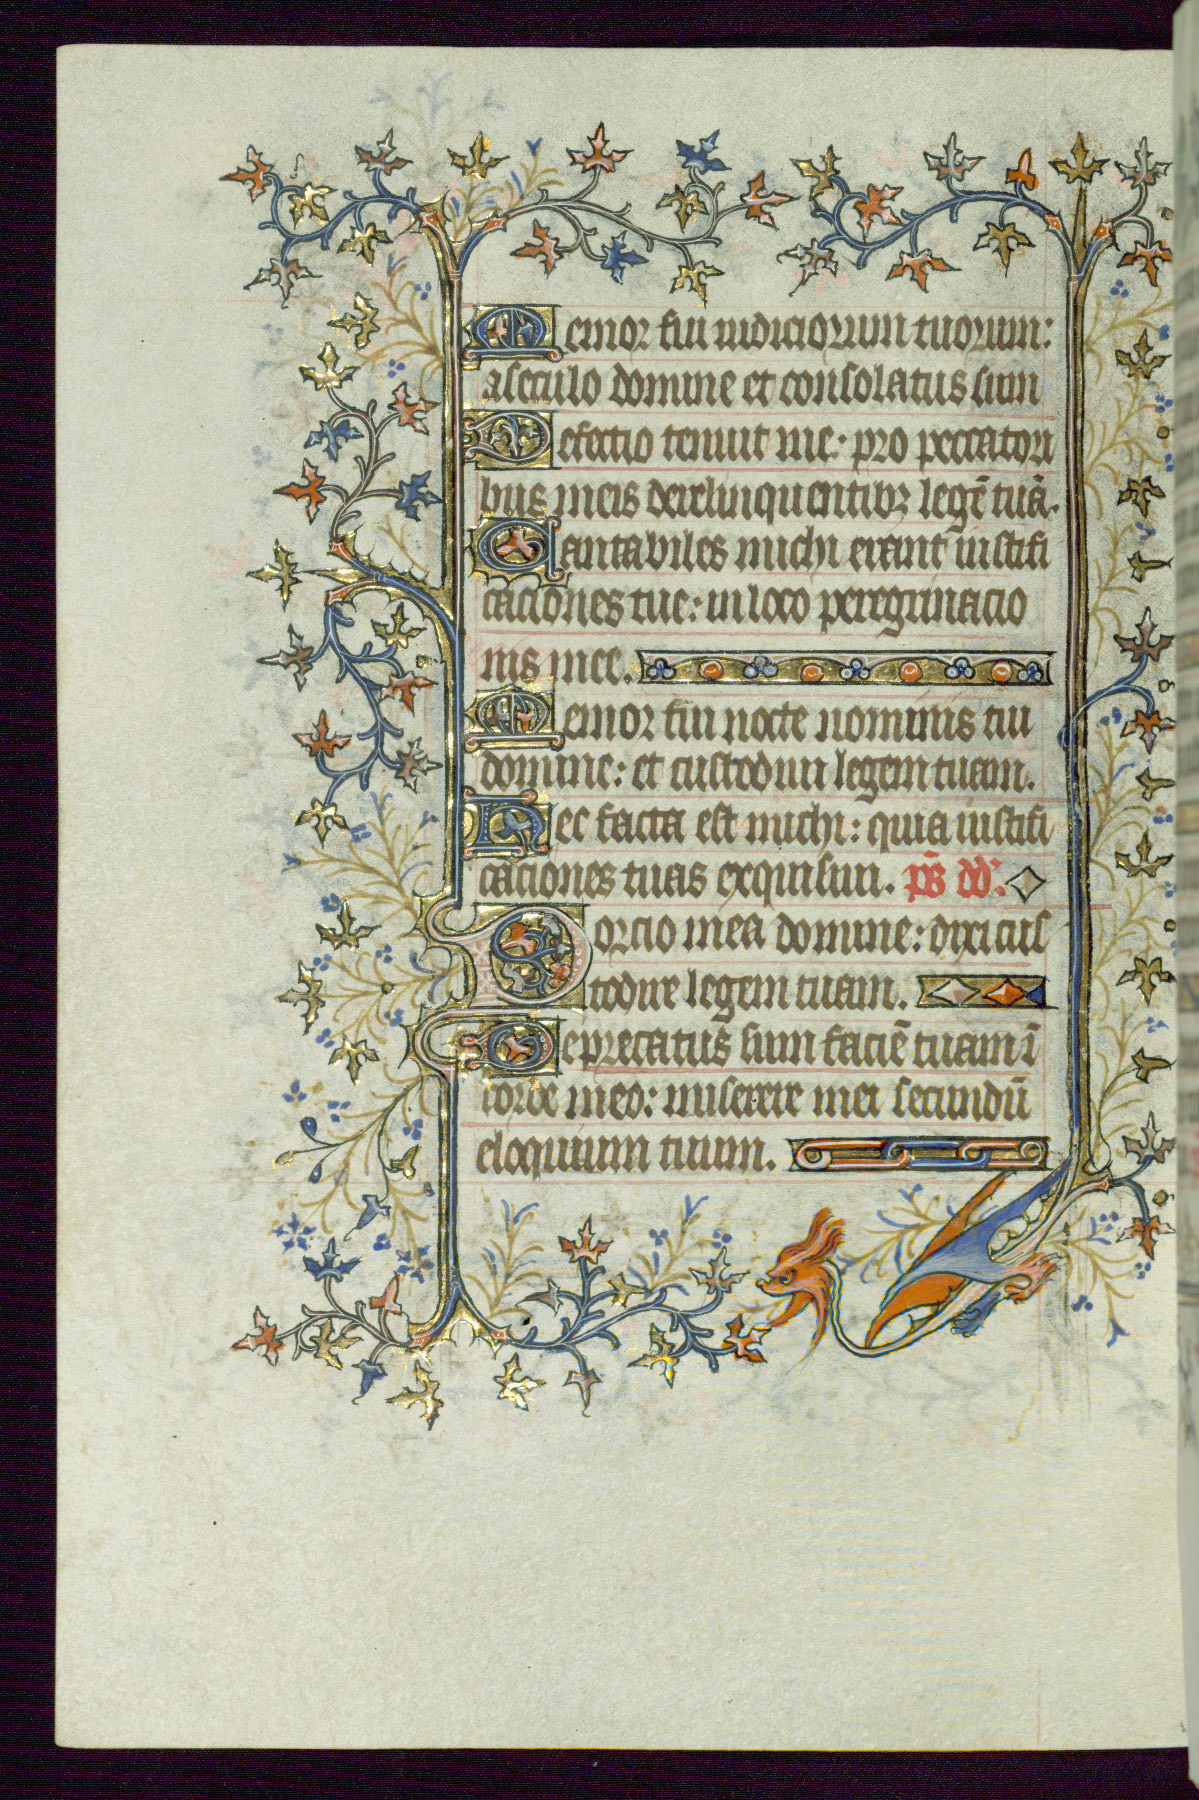 Memor fui iudiciorum tuorum:
a seculo domine et consolatus sum
Defectio tenuit me: pro peccatori
bus meis derelinquentibꝫ legē tuā.
Cantabiles michi erant iustifi
caciones tue: in loco peregrinacio
nis mee.
Memor fui nocte nominis tui
domine: et custodiui legem tuam.
Hec facta est michi: quia iustifi
caciones tuas exquisiui. p̄s dd̄.
Porcio mea domine: dixi cus
todire legem tuam.
Deprecatus sum faciē tuam ī
corde meo: miserere mei secundū
eloquium tuum.